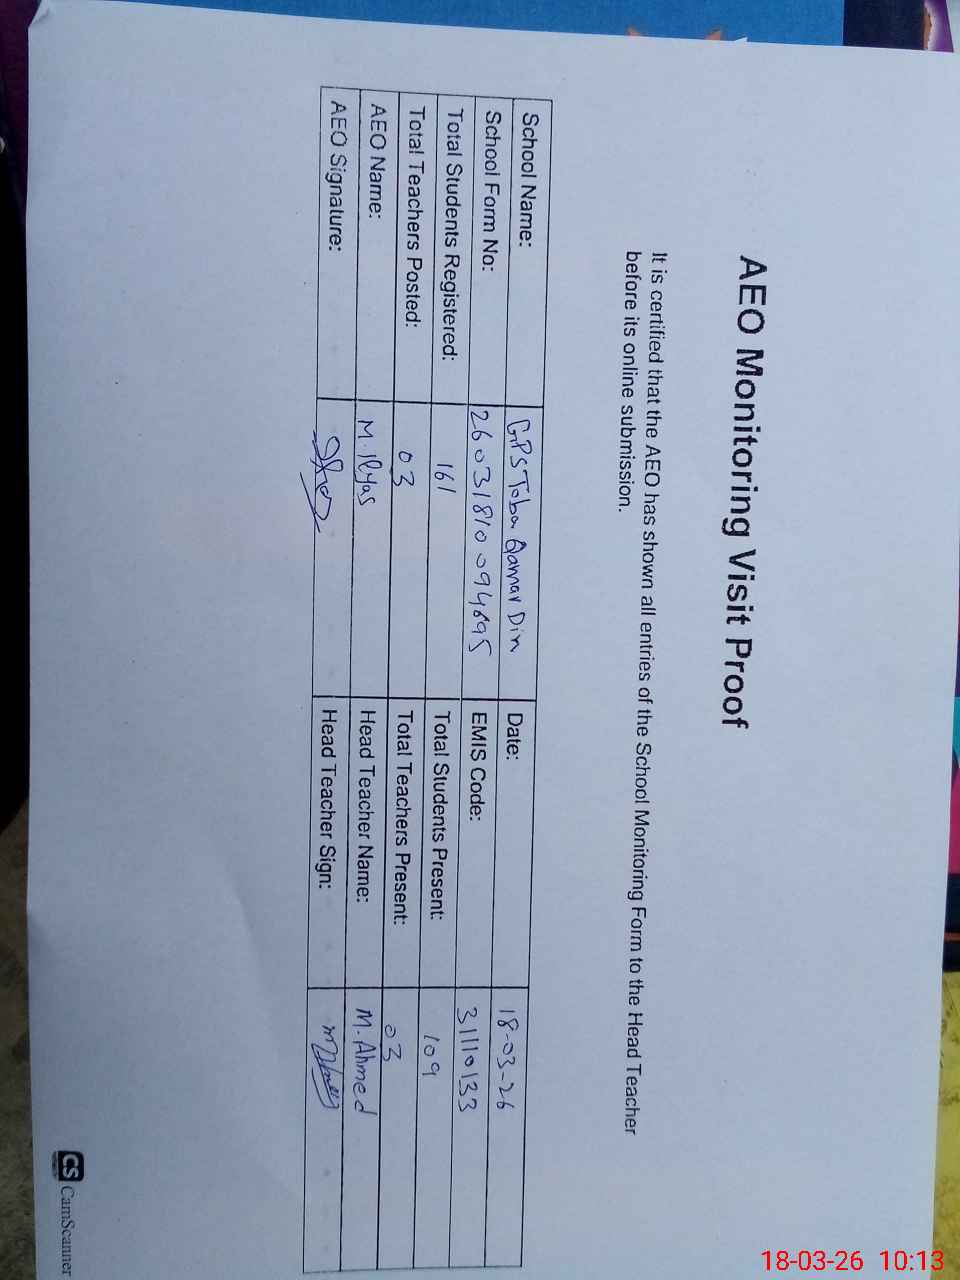 AEO Monitoring Visit Proof
It is certified that the AEO has shown all entries of the School Monitoring Form to the Head Teacher
before its online submission.
School Name: GPS Toba Qamar Din Date: 18-03-26
School Form No: 26031810094695 EMIS Code: 31110133
Total Students Registered: 161 Total Students Present: 109
Total Teachers Posted: 03 Total Teachers Present: 03
AEO Name: M. Ilyas Head Teacher Name: M. Ahmed
AEO Signature: Head Teacher Sign:
CS CamScanner
18-03-26 10:13